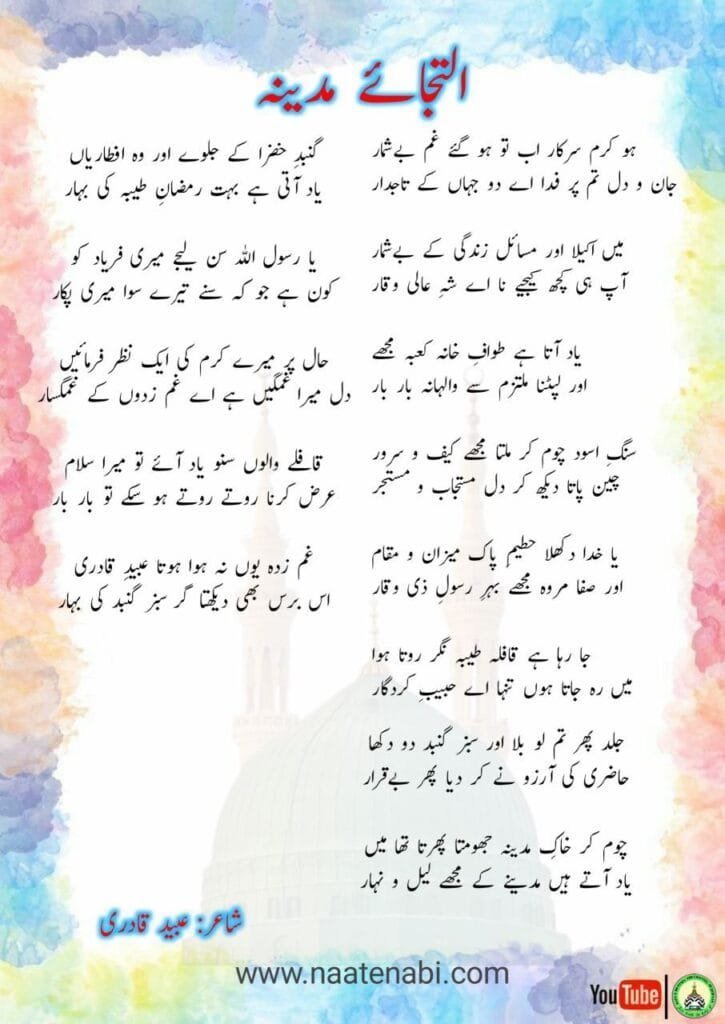 التجائے مدینہ
ہو کرم سرکار اب تو ہو گئے غم بے شمار
جان و دل تم پر فدا اے دو جہاں کے تاجدار
میں اکیلا اور مسائل زندگی کے بے شمار
آپ ہی کچھ کیجیے نا اے شہِ عالی وقار
یاد آتا ہے طوافِ خانہ کعبہ مجھے
اور لپٹنا ملتزم سے والہانہ بار بار
سنگِ اسود چوم کر ملتا مجھے کیف و سرور
چین پاتا دیکھ کر دل مستجاب و مستجر
یا خدا دکھلا حطیمِ پاک میزان و مقام
اور صفا مروہ مجھے بہرِ رسولِ ذی وقار
جا رہا ہے قافلہ طیبہ نگر روتا ہوا
میں رہ جاتا ہوں تنہا اے حبیبِ کردگار
جلد پھر تم لو بلا اور سبز گنبد دو دکھا
حاضری کی آرزو نے کر دیا پھر بے قرار
چوم کر خاکِ مدینہ جھومتا پھرتا تھا میں
یاد آتے ہیں مدینے کے مجھے لیل و نہار
گنبدِ خضرا کے جلوے اور وہ افطاریاں
یاد آتی ہے بہت رمضانِ طیبہ کی بہار
یا رسول اللہ سن لیجے میری فریاد کو
کون ہے جو کہ سنے تیرے سوا میری پکار
حال پر میرے کرم کی ایک نظر فرمائیں
دل میرا غمگیں ہے اے غم زدوں کے غمگسار
قافلے والوں سنو یاد آئے تو میرا سلام
عرض کرنا روتے روتے ہو سکے تو بار بار
غم زدہ یوں نہ ہوا ہوتا عبیدِ قادری
اس برس بھی دیکھتا گر سبز گنبد کی بہار
شاعر: عبید قادری
www.naatenabi.com
YouTube